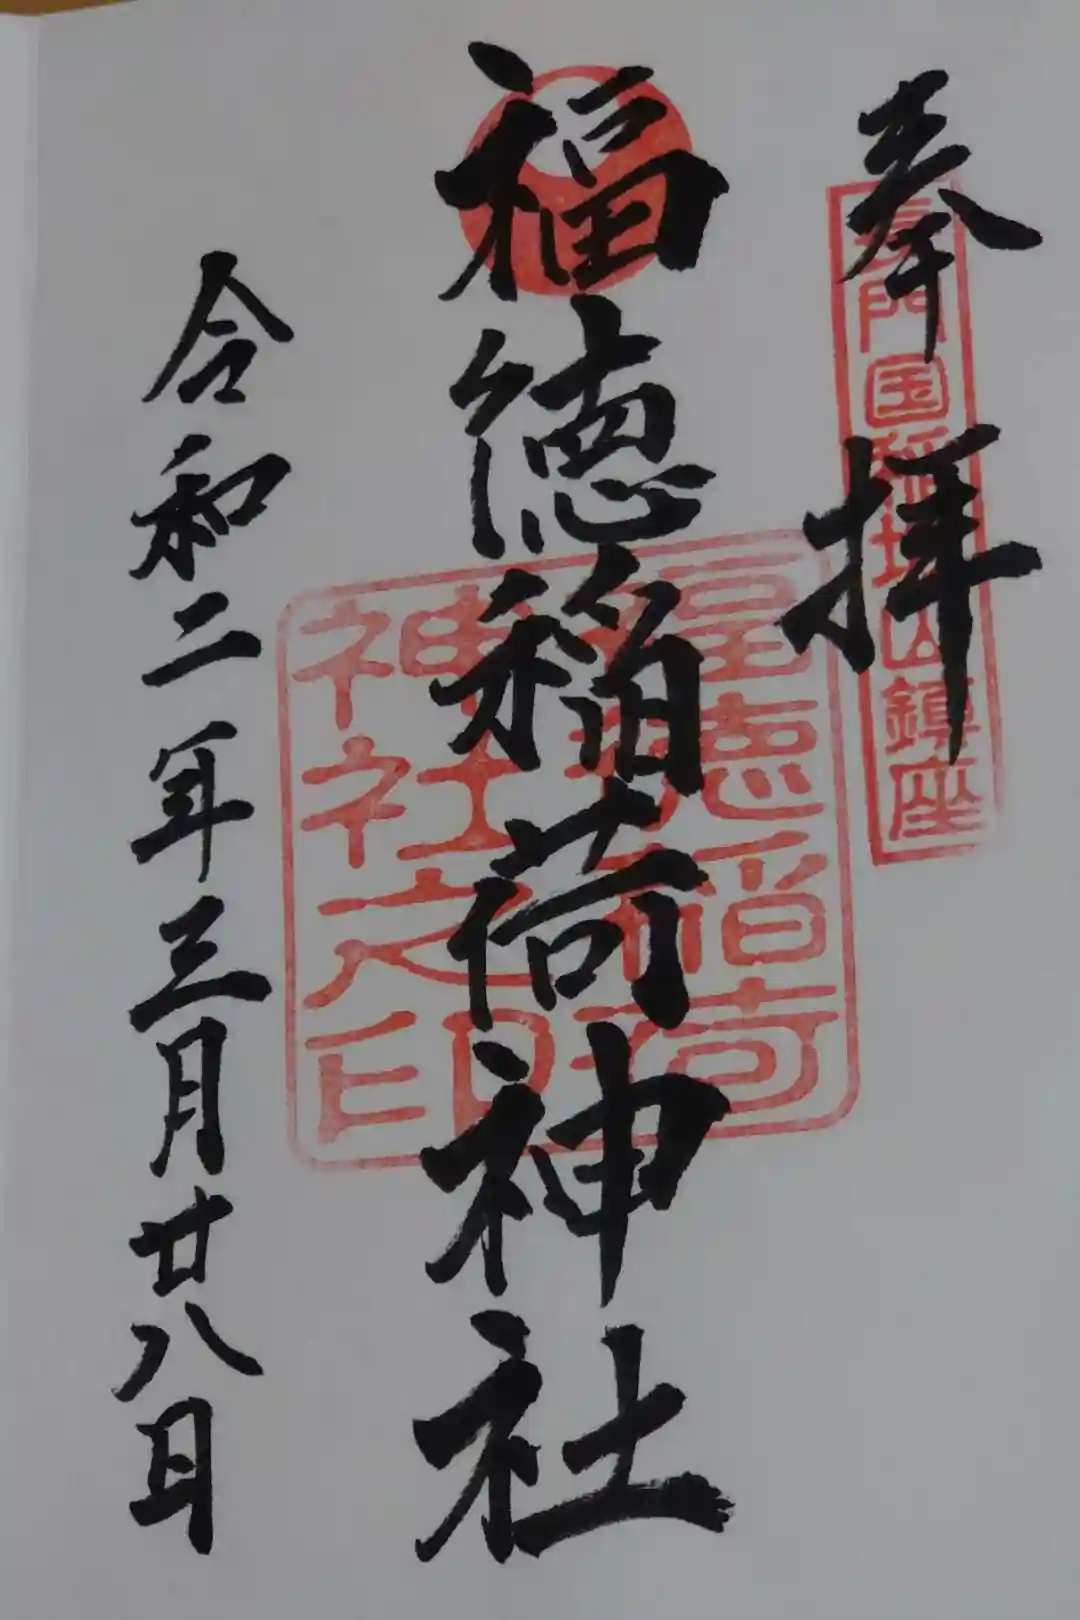 奉拝
長門国稲城山鎮座
福徳稲荷神社
福徳稲荷
神社之印
令和二年三月廿八日